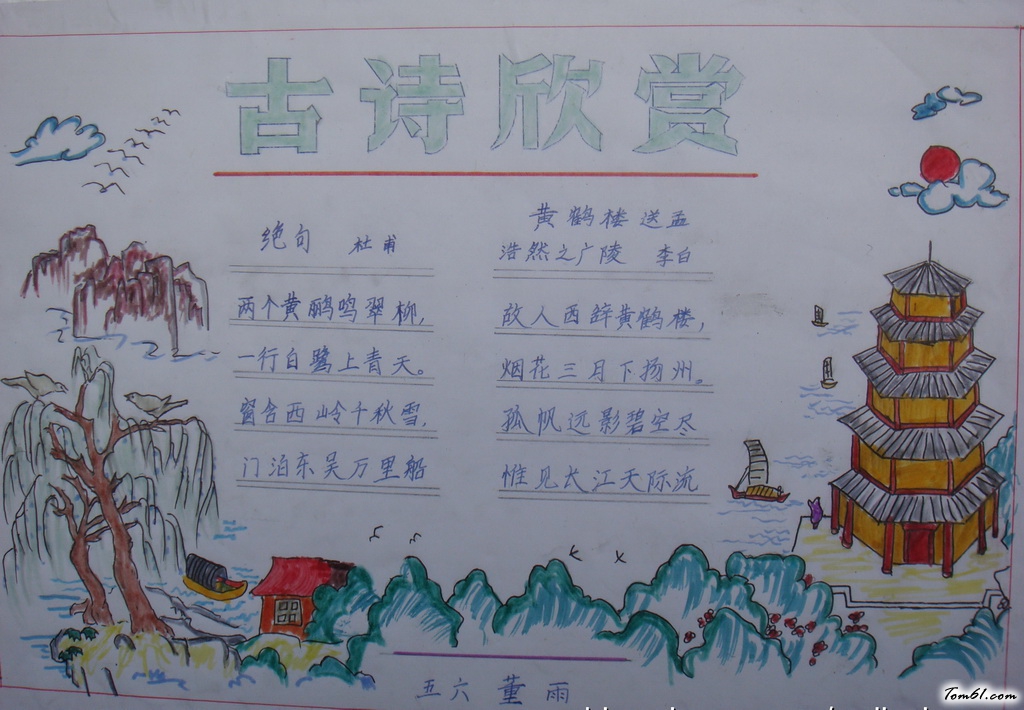 古诗欣赏
绝句 杜甫
两个黄鹂鸣翠柳,
一行白鹭上青天。
窗含西岭千秋雪,
门泊东吴万里船
黄鹤楼送孟
浩然之广陵 李白
故人西辞黄鹤楼,
烟花三月下扬州。
孤帆远影碧空尽
惟见长江天际流
五六 董雨
Tom61.com